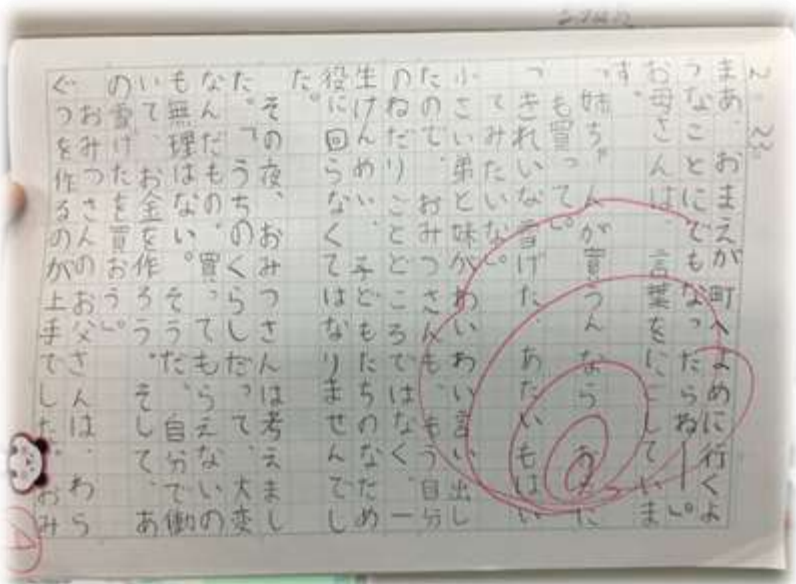 まあ、おまえが町へよめに行くよ
うなことにでもなったらねー。」
お母さんは、言葉をにごしていま
す。
「姉ちゃんが買うんなら、
も買って。」
「きれいな雪げた、あたいもはい
てみたいな。」
小さい弟と妹がわいわい言い出し
たので、おみつさんも、もう自分
のねだりごとどころではなく、一
生けんめい、子どもたちのなだめ
役に回らなくてはなりませんでし
た。
その夜、おみつさんは考えまし
た。「うちのくらしだって、大変
なんだもの、買ってもらえないの
も無理はない。そうだ、自分で働
いて、お金を作ろう。そして、あ
の雪げたを買おう。」
おみつさんのお父さんは、わら
ぐつを作るのが上手でした。おみ